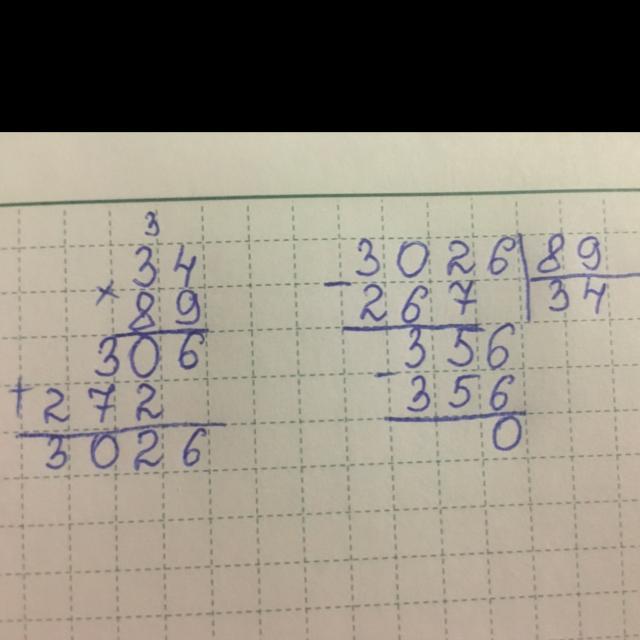 3
34
× 89
306
+ 272
3026
- 3026 | 89
267 | 34
- 356
356
0